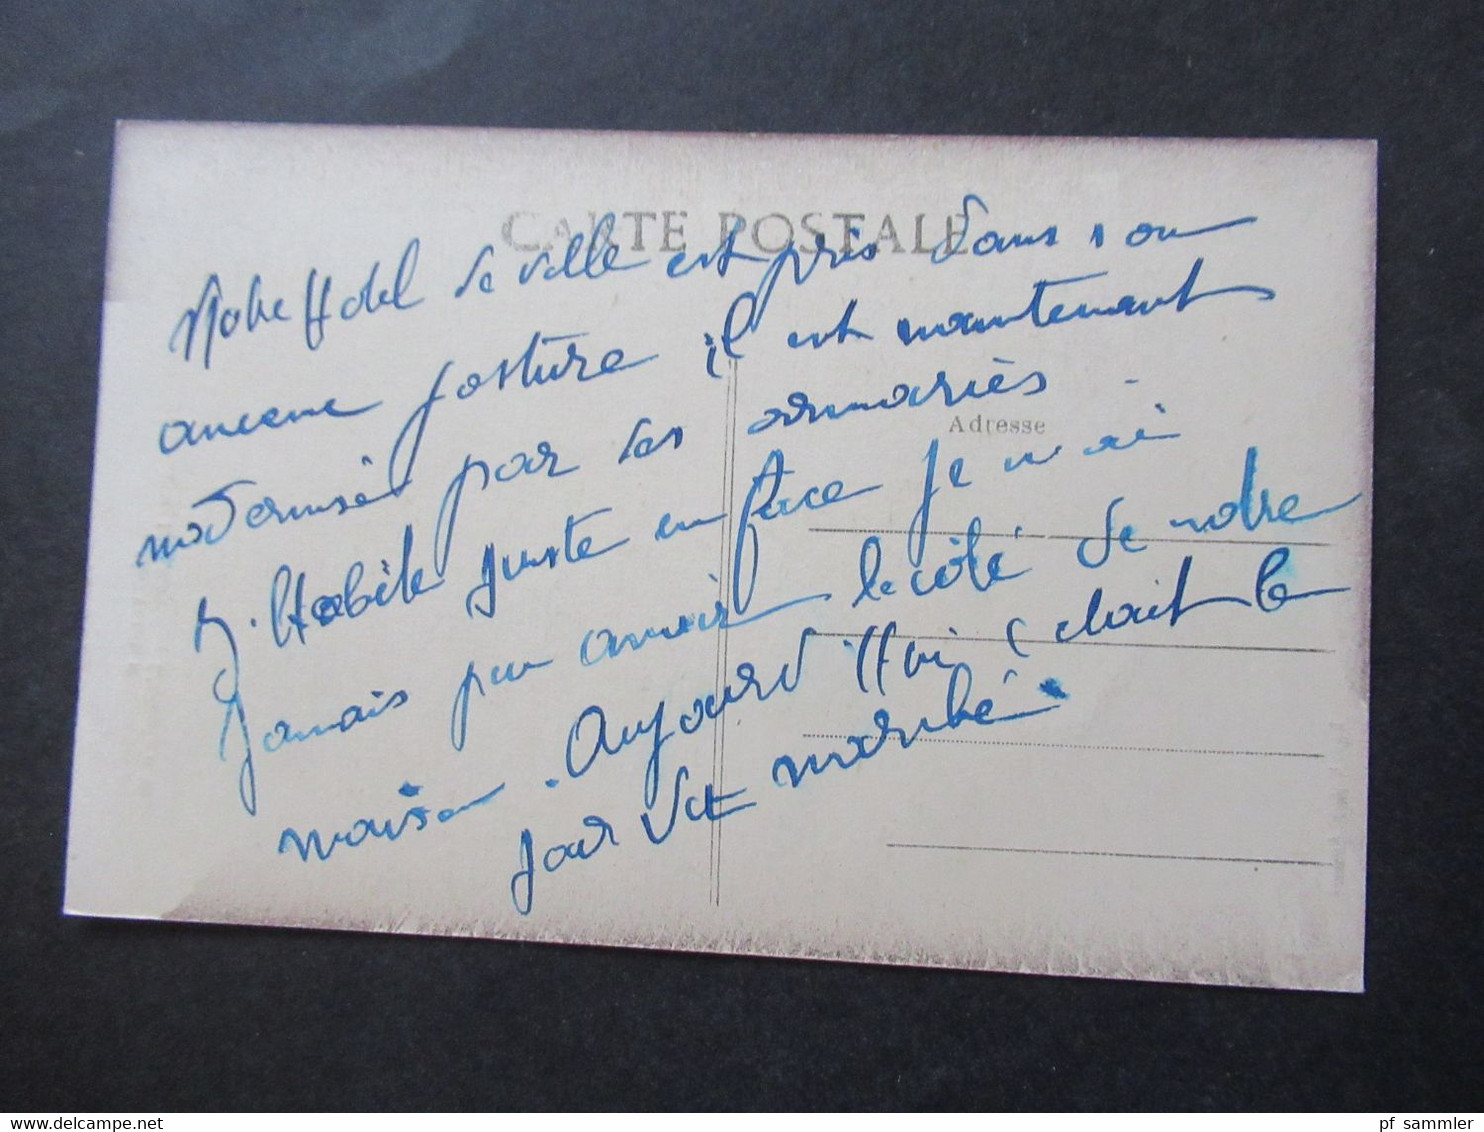 CARTE POSTALE
Notre Hotel de ville est pris dans son
ancienne posture il est maintenant
modernisé par les armariès
Adresse
J. Habite juste en face je n ai
jamais pu avoir le côté de notre
maison. Aujourd'Hui c'était le
jour du marché
www.delcampe.net
pf_sammler